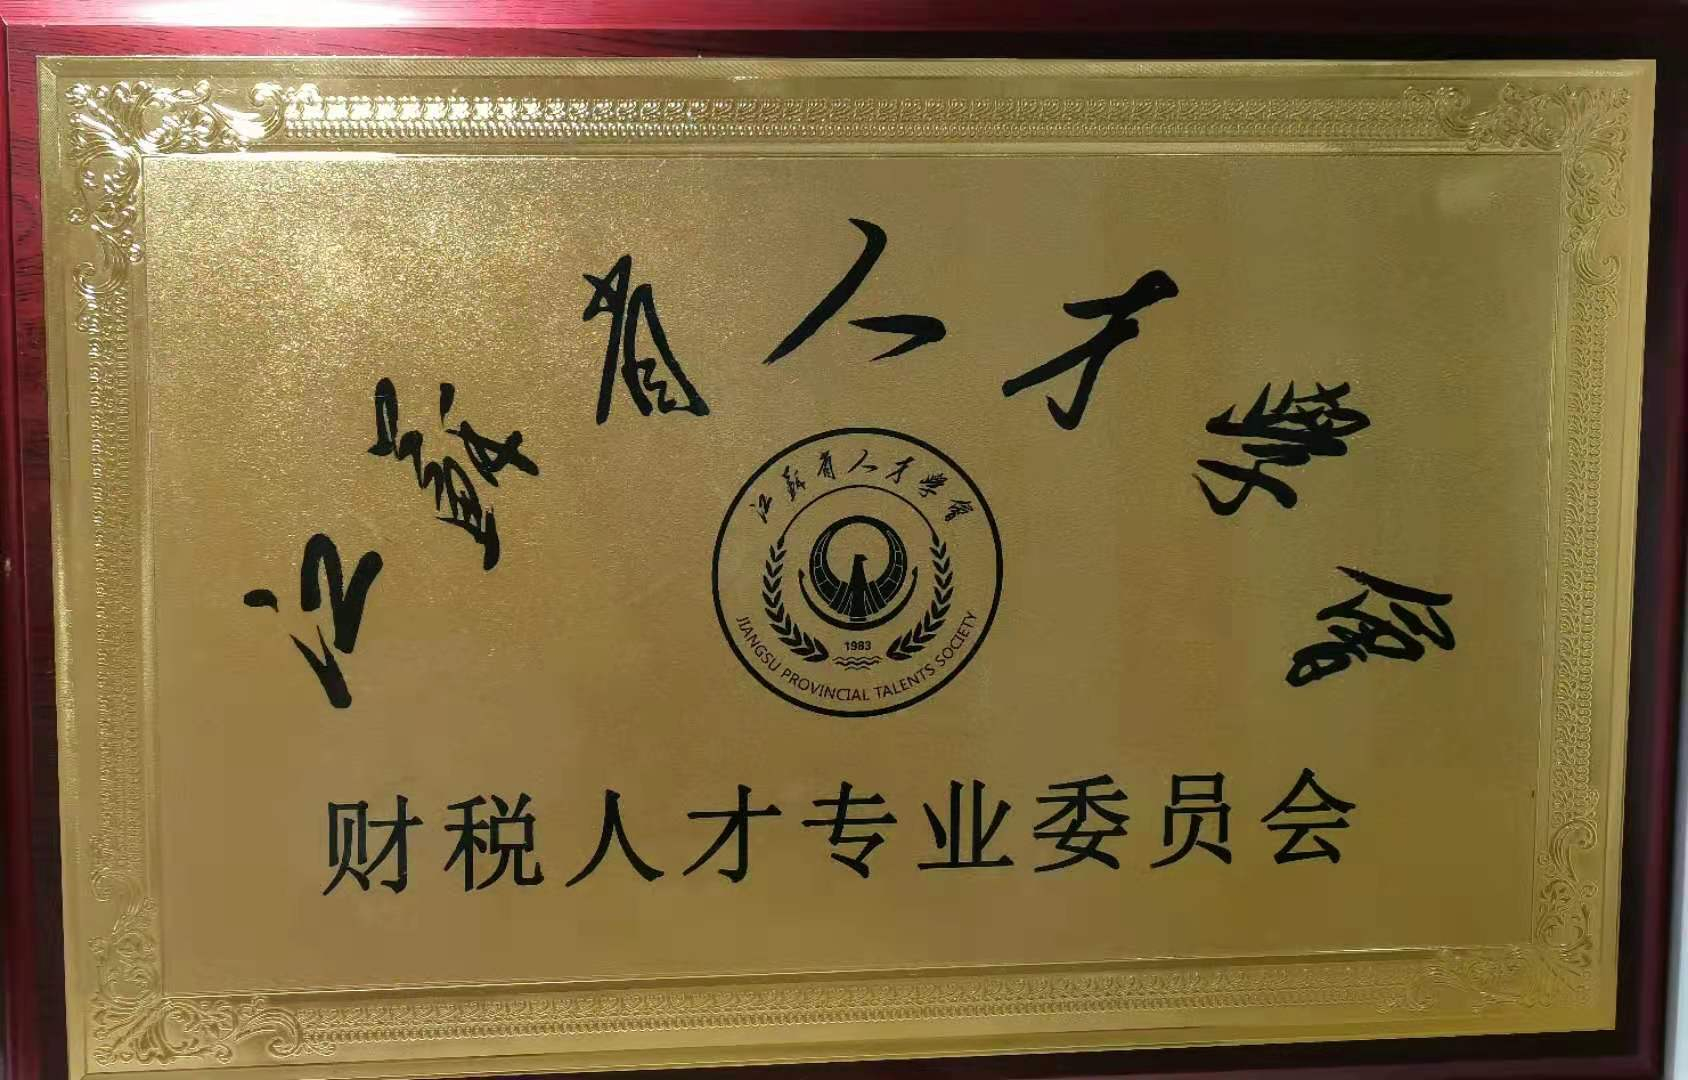 江蘇省人才學會
江蘇省人才學會
1983
JIANGSU PROVINCIAL TALENTS SOCIETY
财税人才专业委员会